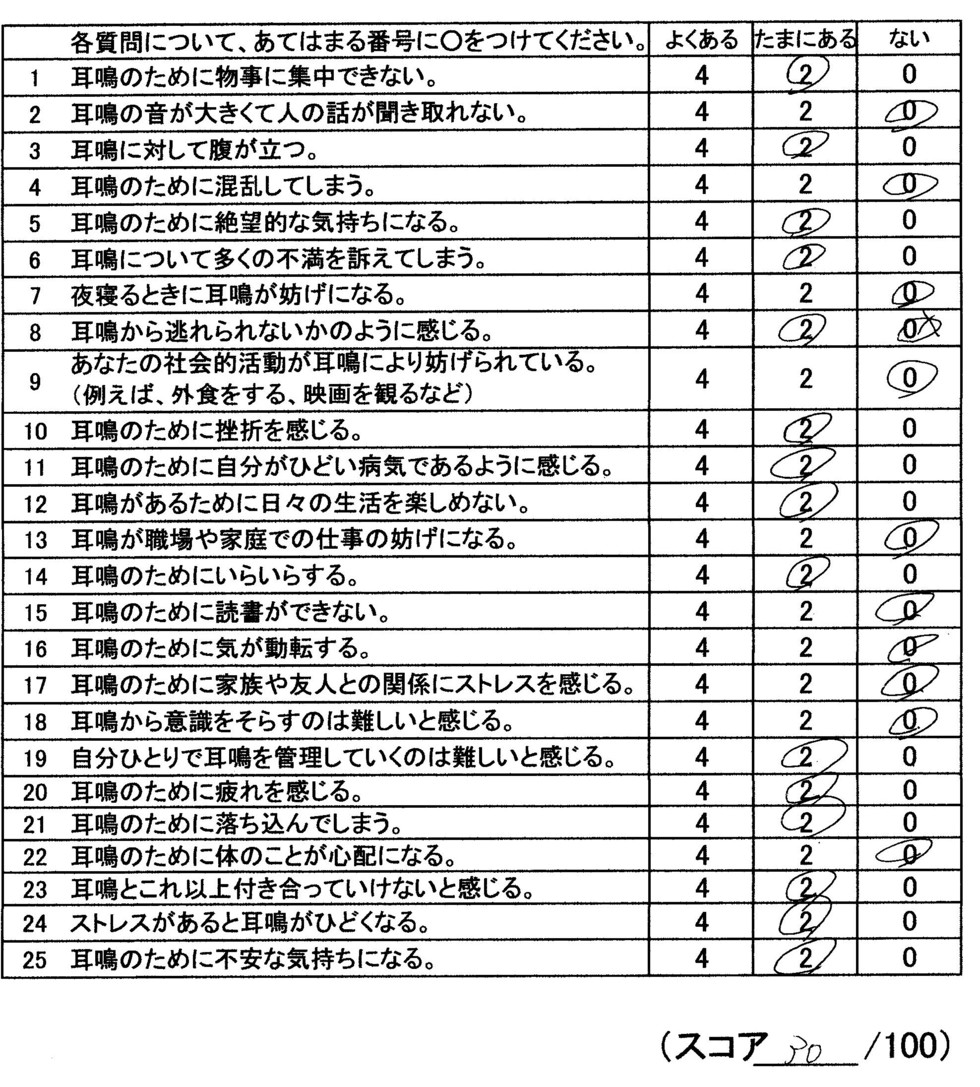 各質問について、あてはまる番号に〇をつけてください。 よくある たまにある ない
1 耳鳴のために物事に集中できない。 4 2 0
2 耳鳴の音が大きくて人の話が聞き取れない。 4 2 0
3 耳鳴に対して腹が立つ。 4 2 0
4 耳鳴のために混乱してしまう。 4 2 0
5 耳鳴のために絶望的な気持ちになる。 4 2 0
6 耳鳴について多くの不満を訴えてしまう。 4 2 0
7 夜寝るときに耳鳴が妨げになる。 4 2 0
8 耳鳴から逃れられないかのように感じる。 4 2 0
9 あなたの社会的活動が耳鳴により妨げられている。 4 2 0
（例えば、外食をする、映画を観るなど）
10 耳鳴のために挫折を感じる。 4 2 0
11 耳鳴のために自分がひどい病気であるように感じる。 4 2 0
12 耳鳴があるために日々の生活を楽しめない。 4 2 0
13 耳鳴が職場や家庭での仕事の妨げになる。 4 2 0
14 耳鳴のためにいらいらする。 4 2 0
15 耳鳴のために読書ができない。 4 2 0
16 耳鳴のために気が動転する。 4 2 0
17 耳鳴のために家族や友人との関係にストレスを感じる。 4 2 0
18 耳鳴から意識をそらすのは難しいと感じる。 4 2 0
19 自分ひとりで耳鳴を管理していくのは難しいと感じる。 4 2 0
20 耳鳴のために疲れを感じる。 4 2 0
21 耳鳴のために落ち込んでしまう。 4 2 0
22 耳鳴のために体のことが心配になる。 4 2 0
23 耳鳴とこれ以上付き合っていけないと感じる。 4 2 0
24 ストレスがあると耳鳴がひどくなる。 4 2 0
25 耳鳴のために不安な気持ちになる。 4 2 0
（スコア 30 /100）